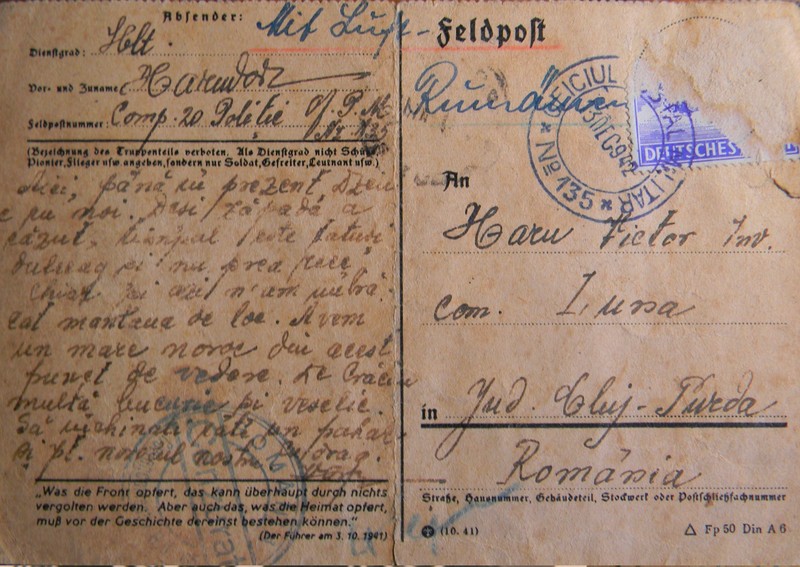 Absender:
Dienstgrad: Hlt.
Vor- und Zuname
Feldpostnummer: Comp. 20 Poliție O.P.M.
Nr. 135
(Bezeichnung des Truppenteils verboten. Als Dienstgrad nicht Schütze,
Pionier, Flieger usw. angeben, sondern nur Soldat, Gefreiter, Leutnant usw.)
până în prezent
e cu noi. Deși zăpada a
căzut, timpul este totuși
și nu prea rece,
Chiar și azi n'am
cat mantaua de loc. Avem
un mare noroc din acest
punct de vedere. De Crăciun
multă bucurie și veselie.
Să închinați câte un pahar
și pt. norocul nostru
„Was die Front opfert, das kann überhaupt durch nichts
vergolten werden. Aber auch das, was die Heimat opfert,
muß vor der Geschichte dereinst bestehen können.“
(Der Führer am 3. 10. 1941)
Mit Luft-Feldpost
Rumänien
OFICIUL POSTAL MILITAR
Nº 135
DEC 942
DEUTSCHES
An
Haru Victor Inv.
com. Luna
in Jud. Cluj-Turda
România
Straße, Hausnummer, Gebäudeteil, Stockwerk oder Postschließfachnummer
(10. 41)
Fp 50 Din A 6